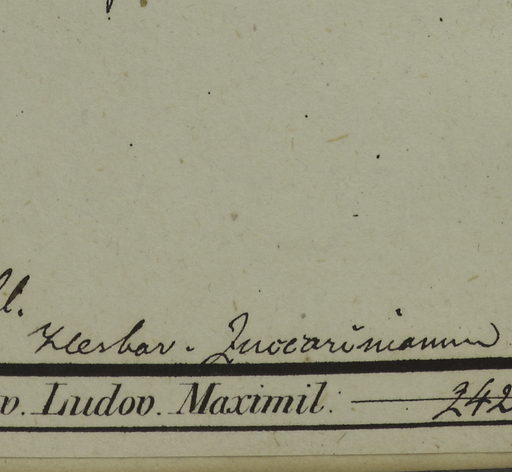 ll.
Herbar. Zuccarinianum
v. Ludov. Maximil. — 242